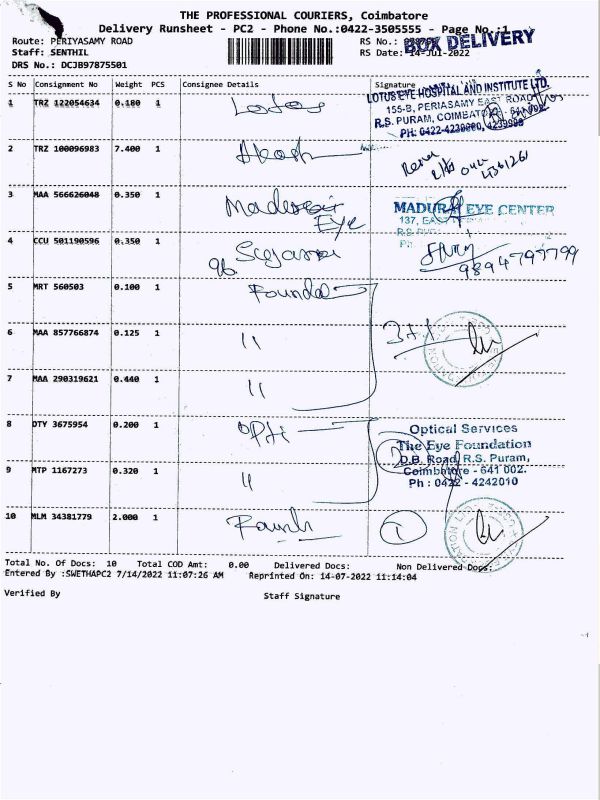 THE PROFESSIONAL COURIERS, Coimbatore
Delivery Runsheet - PC2 - Phone No.:0422-3505555 - Page No.:1
Route: PERIYASAMY ROAD
RS No.:
BOX DELIVERY
Staff: SENTHIL
RS Date: 14-Jul-2022
DRS No.: DCJB97875501
S No Consignment No Weight PCS Consignee Details Signature
LOTUS EYE HOSPITAL AND INSTITUTE LTD.
155-B, PERIYASAMY EAST ROAD
R.S. PURAM, COIMBATORE - 641 002.
PH: 0422-4239900, 4239999
1 TRZ 122054634 0.180 1 Lotus
2 TRZ 100096983 7.400 1 Akash
3 MAA 566626048 0.350 1 Eye
MADURAI EYE CENTER
137, EAST
R.S.
Ph
4 CCU 501190596 0.350 1
9894797799
5 MRT 560503 0.100 1
6 MAA 857766874 0.125 1 "
3+1
7 MAA 290319621 0.440 1 "
8 DTY 3675954 0.200 1 Opti
Optical Services
The Eye Foundation
D.B. Road, R.S. Puram,
Coimbatore - 641 002.
Ph : 0422 - 4242010
9 MTP 1167273 0.320 1 "
10 MLM 34381779 2.000 1
1
Total No. Of Docs: 10 Total COD Amt: 0.00 Delivered Docs: Non Delivered Docs:
Entered By :SWETHAPC2 7/14/2022 11:07:26 AM Reprinted On: 14-07-2022 11:14:04
Verified By Staff Signature